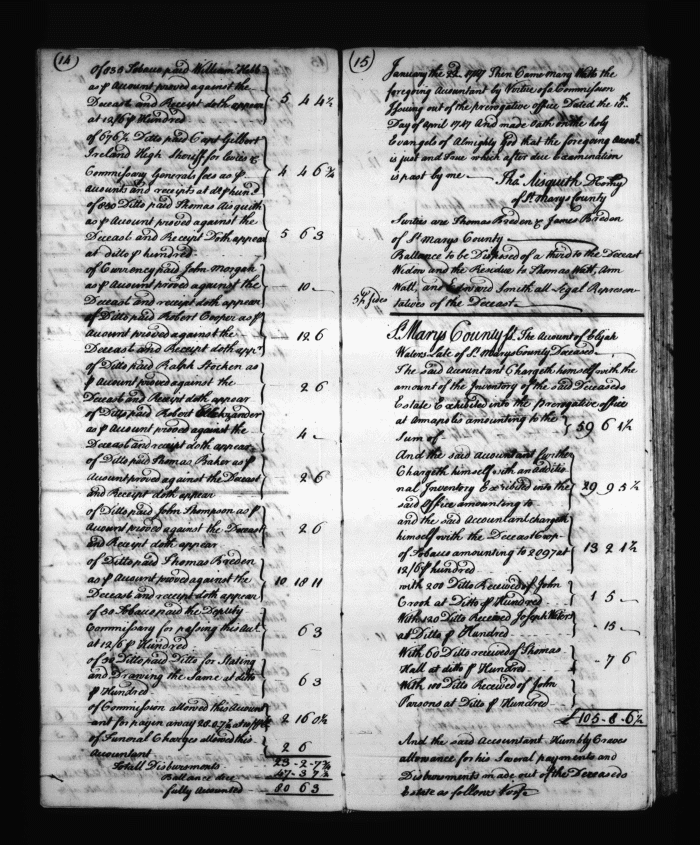 (14)
Of 838 Tobacco paid William Hebb
as ⅌ Account proved against the
Deceast and Receipt doth appear 5 4 4½
at 12/6 ⅌ Hundred
of 676½ Ditto paid Capt Gilbert
Ireland High Sheriff for Levies &
Commissary Generals fees as ⅌ 4 4 6¾
accounts and receipts at do ⅌ hund.d
of 830 Ditto paid Thomas Aisquith
as ⅌ Account proved against the
Deceast and Receipt Doth appear 5 6 3
at ditto ⅌ hundred
of Currency paid John Morgan
as ⅌ Account proved against the 10 -
Deceast and receipt doth appear
of Ditto paid Robert Cooper as ⅌
Account proved against the 12 6
Deceast and Receipt doth app.r
of Ditto paid Ralph as
⅌ Account proved against the 2 6
Deceast and Receipt doth appear
of Ditto paid Robert
as ⅌ Account proved against the 4 -
Deceast and receipt doth appear
of Ditto paid Thomas Baker as ⅌
Account proved against the Deceast 2 6
and Receipt doth appear
of Ditto paid John Thompson as ⅌
Account proved against the Deceast 2 6
and Receipt doth appear
of Ditto paid Thomas Breden
as ⅌ Account proved against the 10 18 11
Deceast and receipt doth appear
of 50 Tobacco paid the Deputy
Commissary for passing this Acct 6 3
at 12/6 ⅌ Hundred
of 50 Ditto paid Ditto for Stating
and Drawing the Same at ditto 6 3
⅌ Hundred
of Commission allowed this Account
ant for payin away 2 16 0½
of Funeral Charges allowed this
Accountant 2 6
Totall Disbursments 23 - 2 - 7¾
Ballance due 47 - 3 7½
fully Accounted 80 6 3
(15)
January the 22d 1747 Then Came Mary Watts the
foregoing Accountant by Virtue of a Commission
Issuing out of the prerogative office Dated the 18th
Day of April 1747 And made Oath on the holy
Evangels of Almighty God that the foregoing Account
is just and True which after due Examination
is past by me Tho.s Aisquith D Comry
of St Marys County
Surties are Thomas Breden & James Breden
of St Marys County
Ballance to be Disposed of a third to the Deceast
Widow and the Residue to Thomas Watt, Ann
Watt, and Edward Smith all Legal Represen-
tatives of the Deceast
Sides
St Marys County ss. The Account of Elijah
Waters Late of St Marys County Deceased
The said Accountant Chargeth himself with the
amount of the Inventory of the said Deceaseds
Estate Exhibited into the Prerogative office
at Annapolis amounting to the 59 6 1½
Sum of
And the said Accountant further
Chargeth himself with an additio
nal Inventory Exhibited into the 29 9 5½
said Office amounting to
and the said Accountant chargeth
himself with the Deceast Crop
of Tobacco amounting to 2097 at 13 2 1½
12/6 ⅌ hundred
with 200 Ditto Received of John
Crook at Ditto ⅌ Hundred 1 5 -
With 120 Ditto Received Joseph Waters
at Ditto ⅌ Hundred - 15 -
With 60 Ditto received of Thomas
Hall at ditto ⅌ Hundred - 7 6
With 100 Ditto Received of John
Parsons at Ditto ⅌ Hundred
£ 105 - 8 - 6½
And the said Accountant Humbly Craves
allowance for his Several payments and
Disbursments made out of the Deceaseds
Estate as follows Viz.t